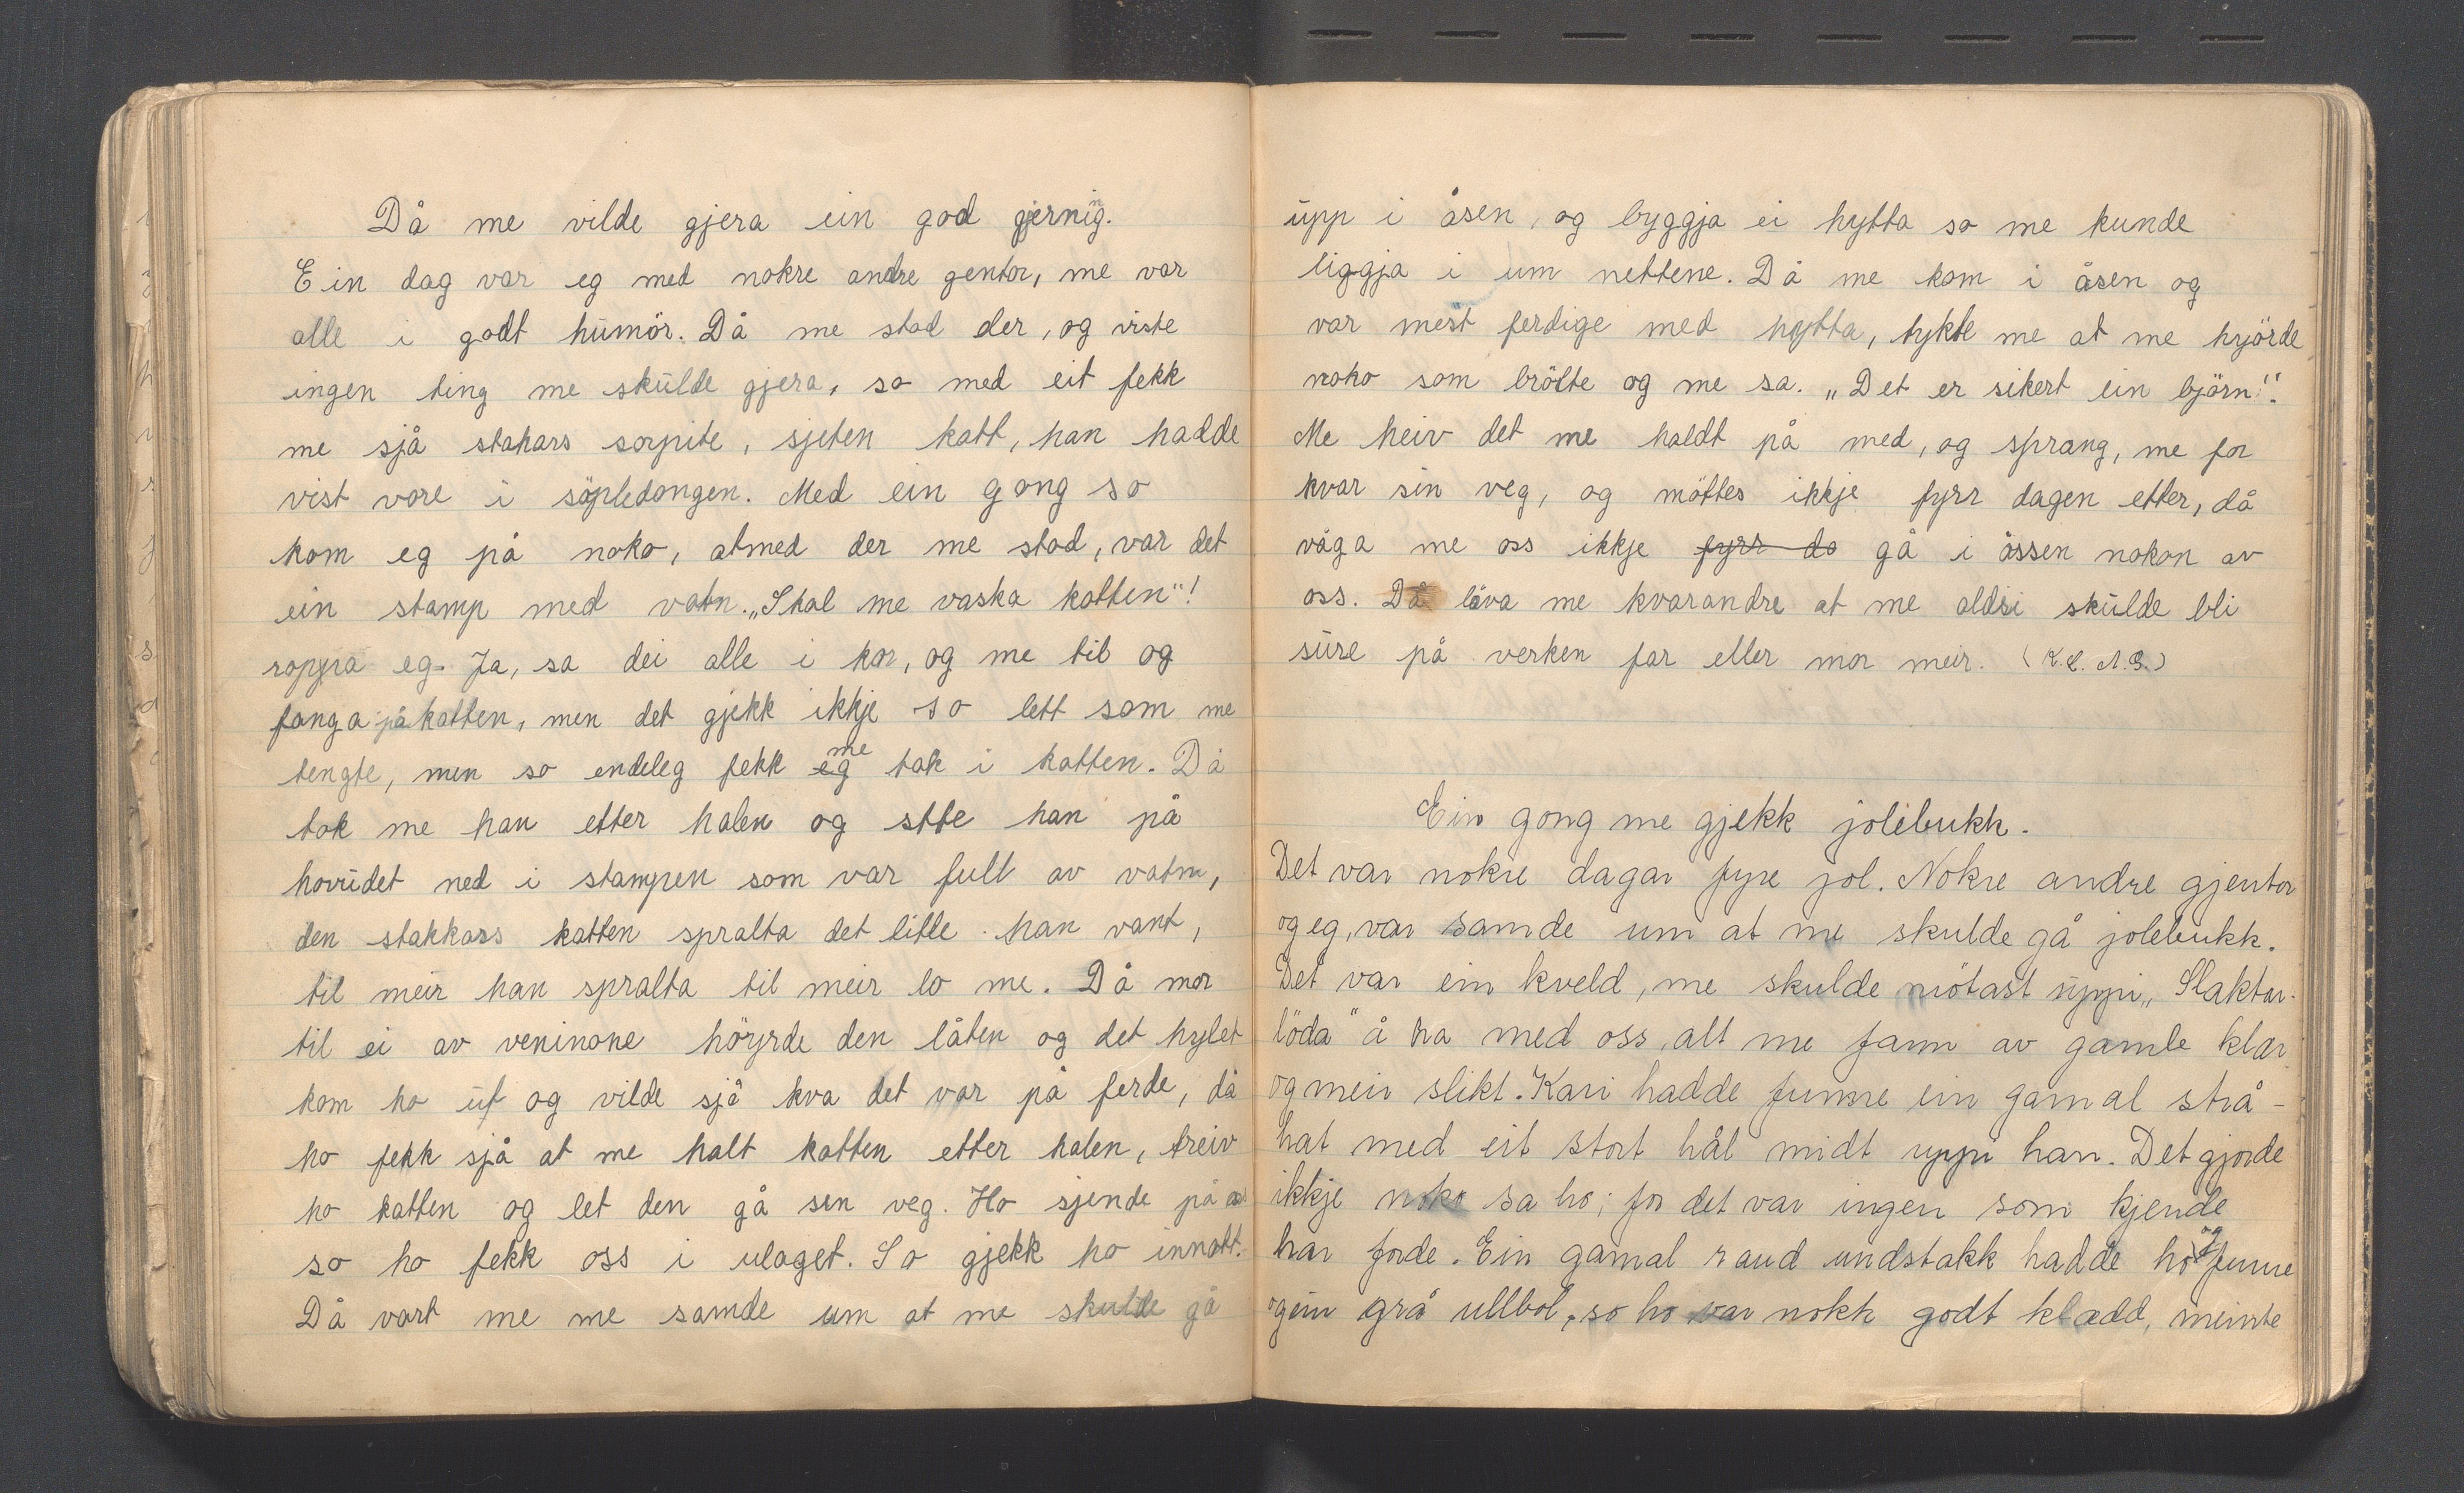 Då me vilde gjera ein god gjernig.
Ein dag var eg med nokre andre gentor, me var
alle i godt humör. Då me stod der, og viste
ingen ting me skulde gjera, so med eit fekk
me sjå stakars sorpite, sjeten katt, han hadde
vist vore i söpledongen. Med ein gong so
kom eg på noko, atmed der me stod, var det
ein stamp med vatn. „Skal me vaska katten"!
ropra eg. Ja, sa dei alle i kor, og me til og
fanga på katten, men det gjekk ikkje so lett som me
tengte, men so endeleg fekk eg me tak i katten. Då
tok me han etter halen og stte han på
hovudet ned i stampen som var full av vatn,
den stakkars katten spralta det litle han vant,
til meir han spralta til meir lo me. Då mor
til ei av veninone höyrde den låten og det hylet
kom ho ut og vilde sjå kva det var på ferde, då
ho fekk sjå at me halt katten etter halen, treiv
ho katten og let den gå sin veg. Ho sjende på os
so ho fekk oss i ulaget. So gjekk ho innatt.
Då vart me me samde um at me skulde gå
upp i åsen, og byggja ei hytta so me kunde
liggja i um nettene. Då me kom i åsen og
var mest ferdige med hytta, tykte me at me hyörde
noko som brölte og me sa. „Det er sikert ein björn!".
Me heiv det me haldt på med, og sprang, me for
kvar sin veg, og möttes ikkje fyrr dagen etter, då
våga me oss ikkje fyrr do gå i åssen nokon av
oss. Då låva me kvarandre at me aldri skulde bli
sure på verken far eller mor meir. (K.L. N.S.)
Ein gong me gjekk jolebukk.
Det var nokre dagar fyre jol. Nokre andre gjentor
og eg, var samde um at me skulde gå jolebukk.
Det var ein kveld, me skulde mötast uppi „Slaktar-
löda" å ha med oss, alt me fann av gamle klær
og meir slikt. Kari hadde funne ein gamal strå-
hat med eit stort hål midt uppi han. Det gjorde
ikkje noko sa ho; for det var ingen som kjende
har forde. Ein gamal raud undstakk hadde ho og funne
og ein grå ullbol, so ho var nokk godt klædd, meinte